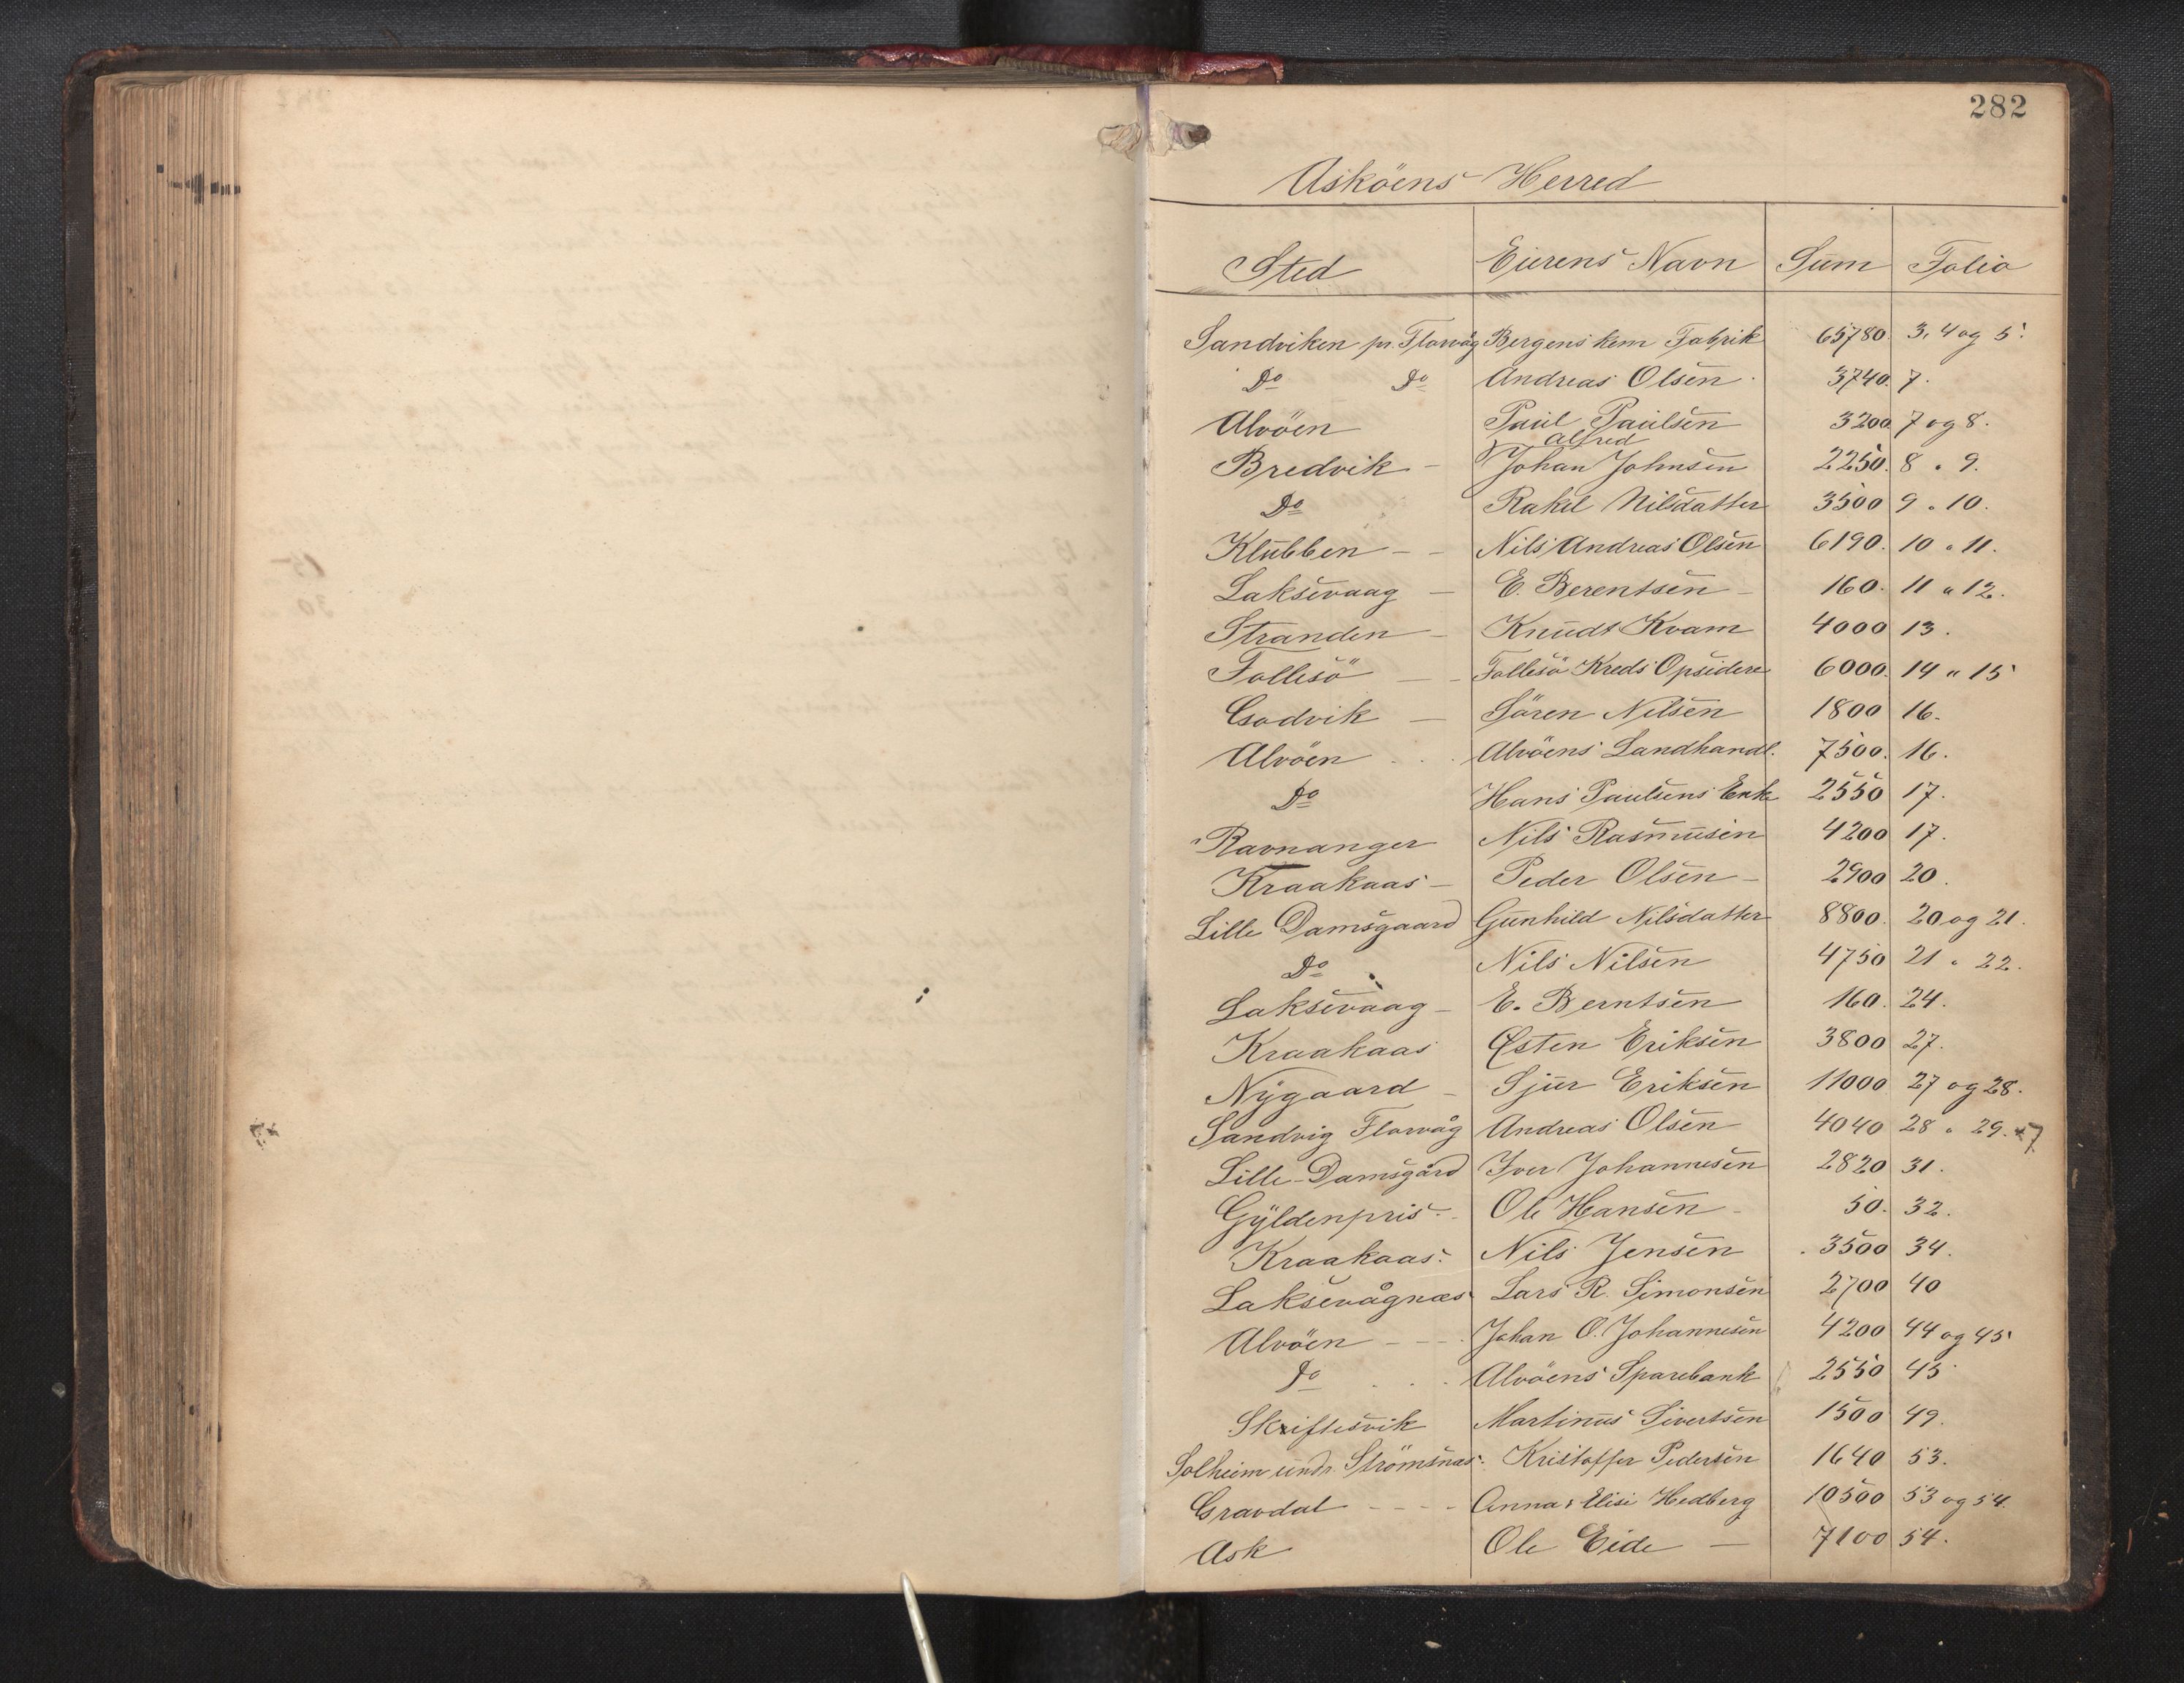 282
Asköens Herred
Sted Eierens Navn Sum Folio
Sandviken pr. Florvåg Bergens kem Fabrik 65780. 3, 4 og 5.
Do Do Andreas Olsen 3740. 7.
Alvöen Paul Paulsen 3200 7 og 8.
Alfred
Bredvik - Johan Johnsen 2250. 8 " 9.
Do Rakel Nilsdatter 3500 9 " 10.
Klubben - - Nils Andreas Olsen 6190. 10 " 11.
Laksevaag - E. Berentsen - 160. 11 " 12.
Stranden - Knudt Kvam 4000 13.
Follesö - - Follesö Kreds Opsidere 6000. 14 " 15
Godvik - Sören Nilsen 1800 16.
Alvöen Alvöens Landhandl. 7500. 16.
Do Hans Paulsens Enke 2550 17.
Ravnanger Nils Rasmusen 4200 17.
Kraakaas - Peder Olsen - 2900 20.
Lille Damsgaard Gunhild Nilsdatter 8800. 20 og 21.
Do Nils Nilsen 4750 21 " 22.
Laksevaag - E. Berntsen 160. 24.
Kraakaas Østen Eriksen 3800 27.
Nygaard - Sjur Eriksen 11000 27 og 28.
Sandvig Florvåg Andreas Olsen 4040 28 " 29. + 7
Lille-Damsgård Iver Johannesen 2820 31.
Gyldenpris - Ole Hansen - 50. 32.
Kraakaas Nils Jensen 3500 34.
Laksevågnæs Lars R. Simonsen 2700 40
Alvöen - - - Johan O. Johannesen 4200 44 og 45
Do Alvöens Sparebank 2550 45
Skriftesvik Martinus Sivertsen 1500 49.
Solheim undr. Strömsnæs Kristoffer Pedersen 1640 53.
Gravdal - - - - Anna & Elise Hedberg 10500 53 og 54.
Ask Ole Eide - 7100 54.